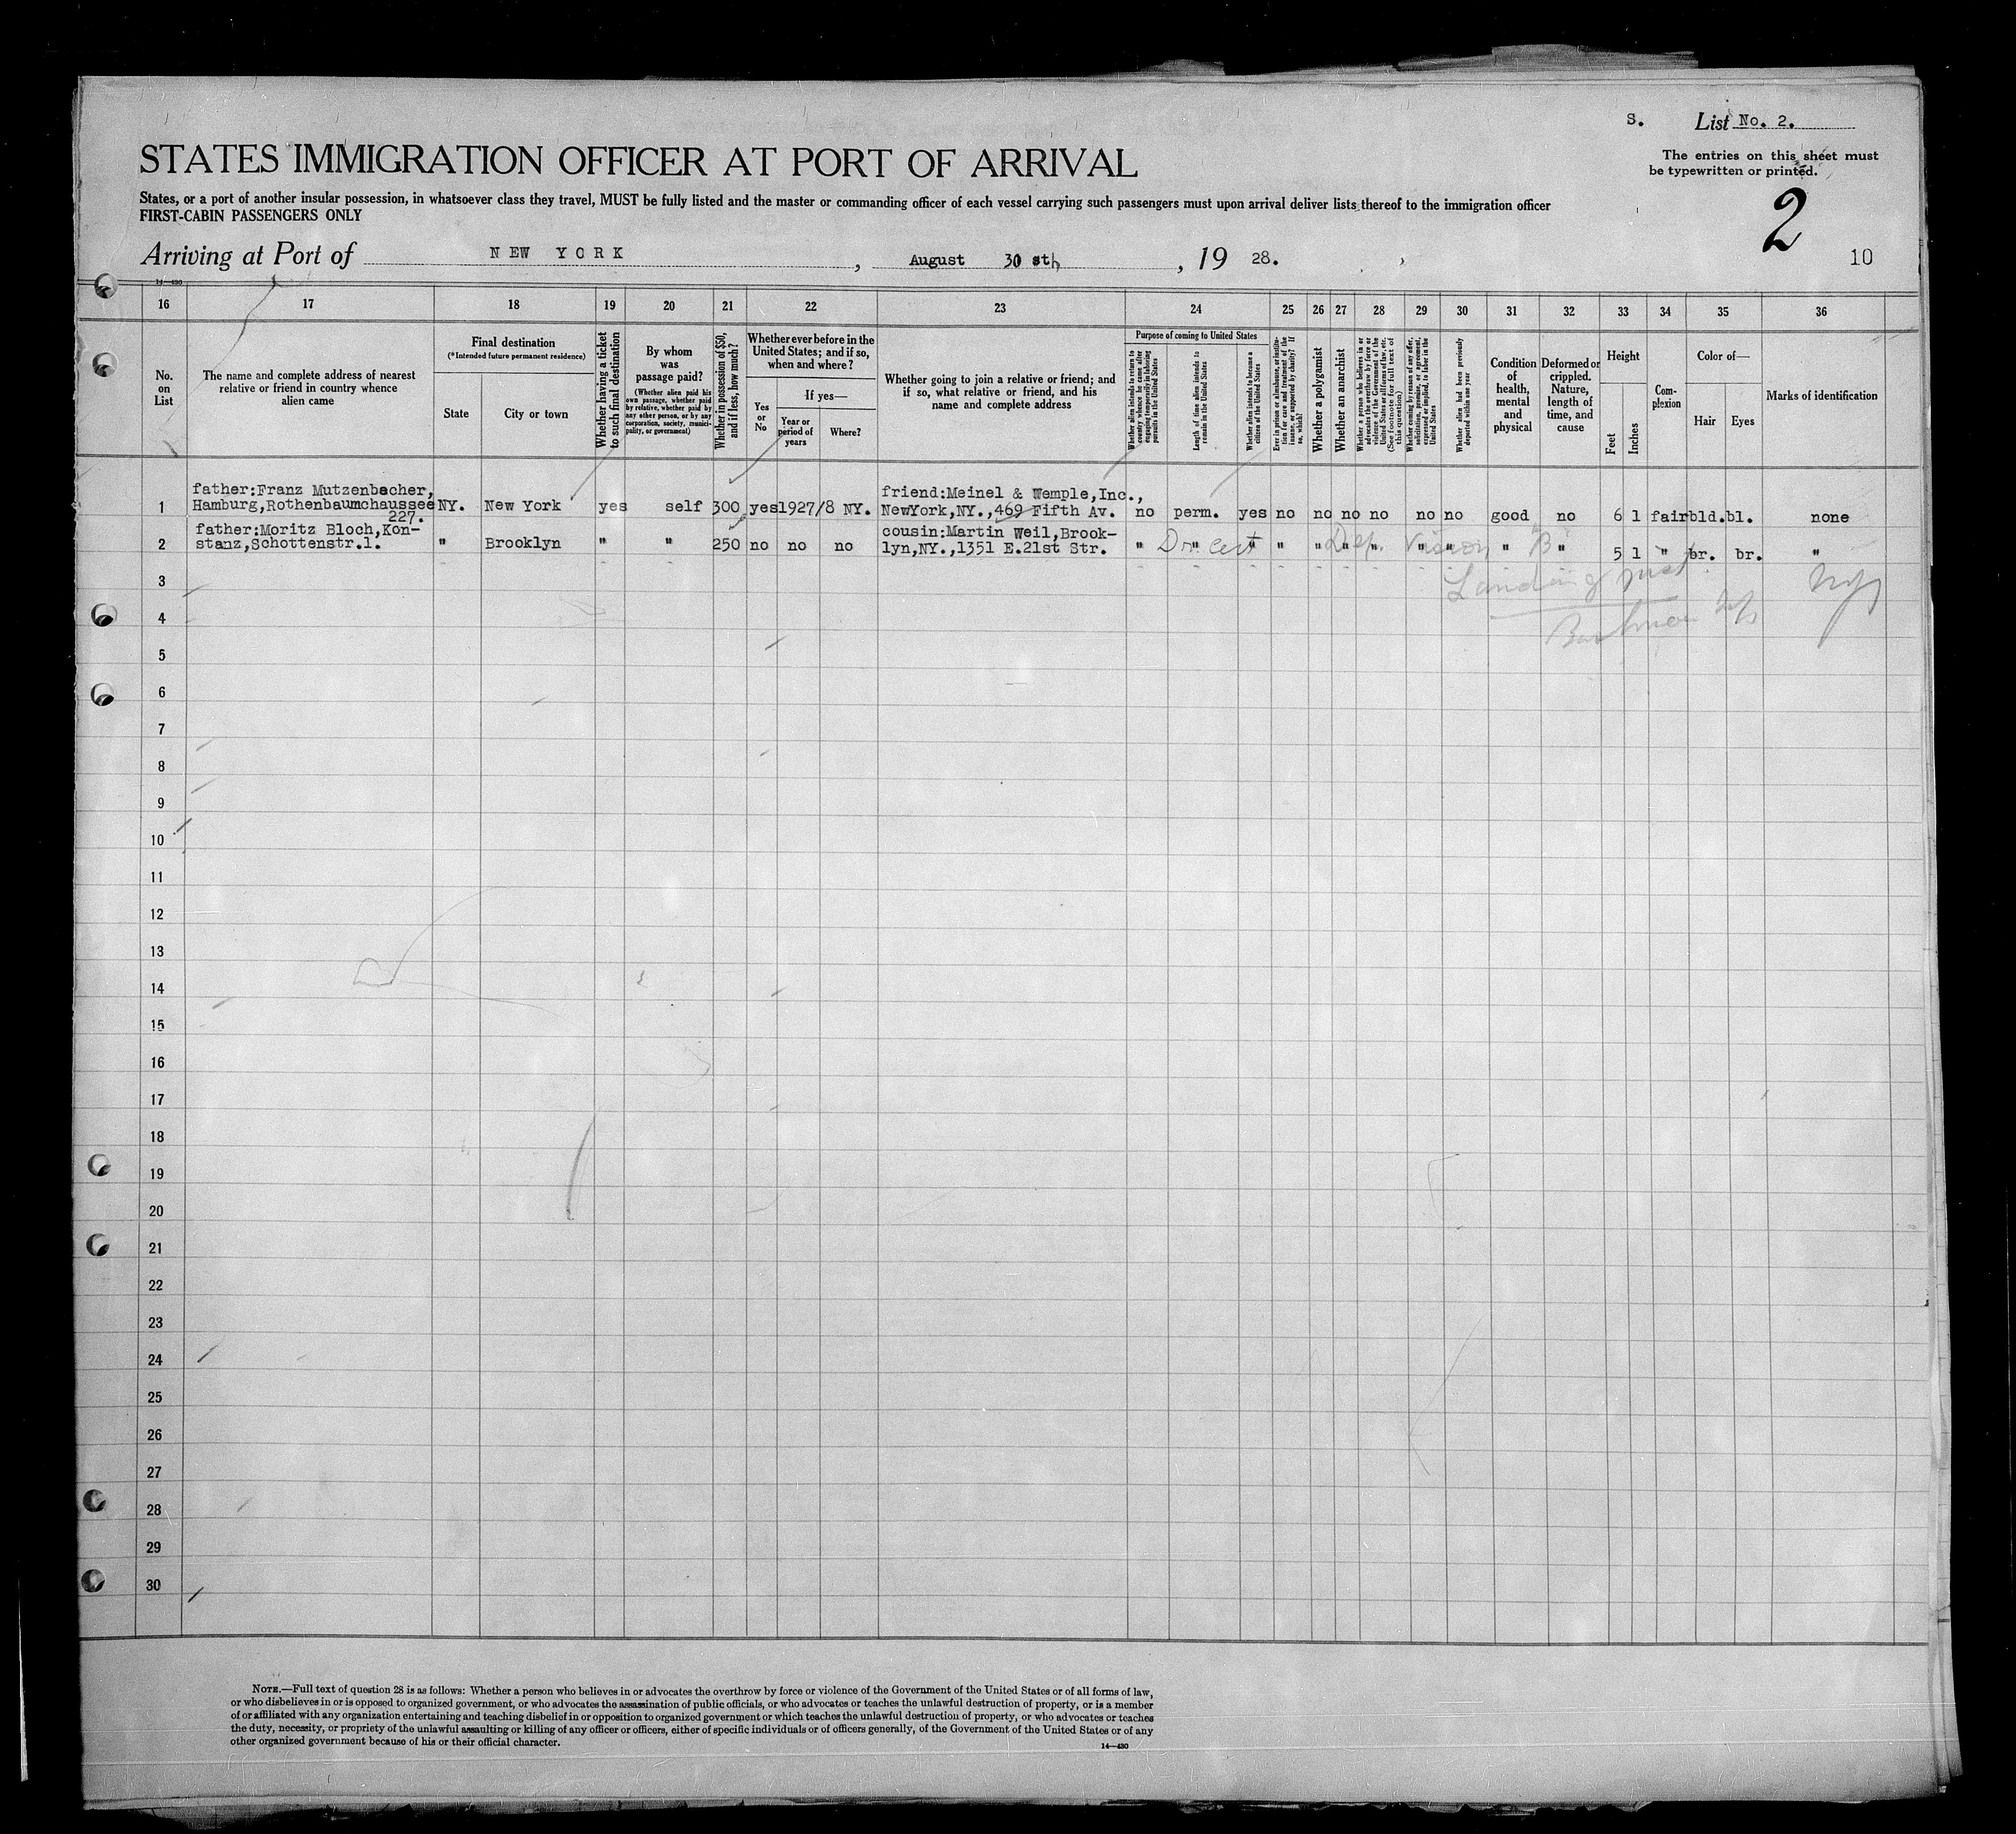 S. List No. 2.
STATES IMMIGRATION OFFICER AT PORT OF ARRIVAL
The entries on this sheet must
be typewritten or printed.
States, or a port of another insular possession, in whatsoever class they travel, MUST be fully listed and the master or commanding officer of each vessel carrying such passengers must upon arrival deliver lists thereof to the immigration officer
FIRST-CABIN PASSENGERS ONLY
2
Arriving at Port of NEW YORK, August 30 th, 19 28.
10
14—430
16 17 18 19 20 21 22 23 24 25 26 27 28 29 30 31 32 33 34 35 36
No. on List
The name and complete address of nearest
relative or friend in country whence
alien came
Final destination
(*Intended future permanent residence)
State
City or town
Whether having a ticket
to such final destination
By whom
was
passage paid?
(Whether alien paid his
own passage, whether paid
by relative, whether paid by
any other person, or by any
corporation, society, munici-
pality, or government)
Whether in possession of $50,
and if less, how much?
Whether ever before in the
United States; and if so,
when and where?
Yes
or
No
If yes—
Year or
period of
years
Where?
Whether going to join a relative or friend; and
if so, what relative or friend, and his
name and complete address
Purpose of coming to United States
Whether alien intends to return to
country whence he came after
engaging temporarily in laboring
pursuits in the United States
Length of time alien intends to
remain in the United States
Whether alien intends to become a
citizen of the United States
Ever in prison or almshouse, or institu-
tion for care and treatment of the
insane, or supported by charity? If
so, which?
Whether a polygamist
Whether an anarchist
Whether a person who believes in or
advocates the overthrow by force or
violence of the Government of the
United States or all forms of law, etc.
(See footnote for full text of
this question)
Whether coming by reason of any offer,
solicitation, promise, or agreement,
expressed or implied, to labor in the
United States
Whether alien had been previously
deported within one year
Condition
of
health,
mental
and
physical
Deformed or
crippled.
Nature,
length of
time, and
cause
Height
Feet
Inches
Com-
plexion
Color of—
Hair
Eyes
Marks of identification
father:Franz Mutzenbacher, friend:Meinel & Wemple,Inc.,
1 Hamburg,Rothenbaumchaussee NY. New York yes self 300 yes 1927/8 NY. NewYork,NY.,469 Fifth Av. no perm. yes no no no no no no good no 6 1 fair bld. bl. none
227.
father:Moritz Bloch,Kon- cousin:Martin Weil,Brook-
2 stanz,Schottenstr.1. " Brooklyn " " 250 no no no lyn,NY.,1351 E.21st Str. " " " " " " " " " " " 5 1 " br. br. "
Dr. Cert Vision B
3 Landing
4
5
6
7
8
9
10
11
12
13
14
15
16
17
18
19
20
21
22
23
24
25
26
27
28
29
30
NOTE.—Full text of question 28 is as follows: Whether a person who believes in or advocates the overthrow by force or violence of the Government of the United States or of all forms of law,
or who disbelieves in or is opposed to organized government, or who advocates the assassination of public officials, or who advocates or teaches the unlawful destruction of property, or is a member
of or affiliated with any organization entertaining and teaching disbelief in or opposition to organized government or which teaches the unlawful destruction of property, or who advocates or teaches
the duty, necessity, or propriety of the unlawful assaulting or killing of any officer or officers, either of specific individuals or of officers generally, of the Government of the United States or of any
other organized government because of his or their official character.
14—430